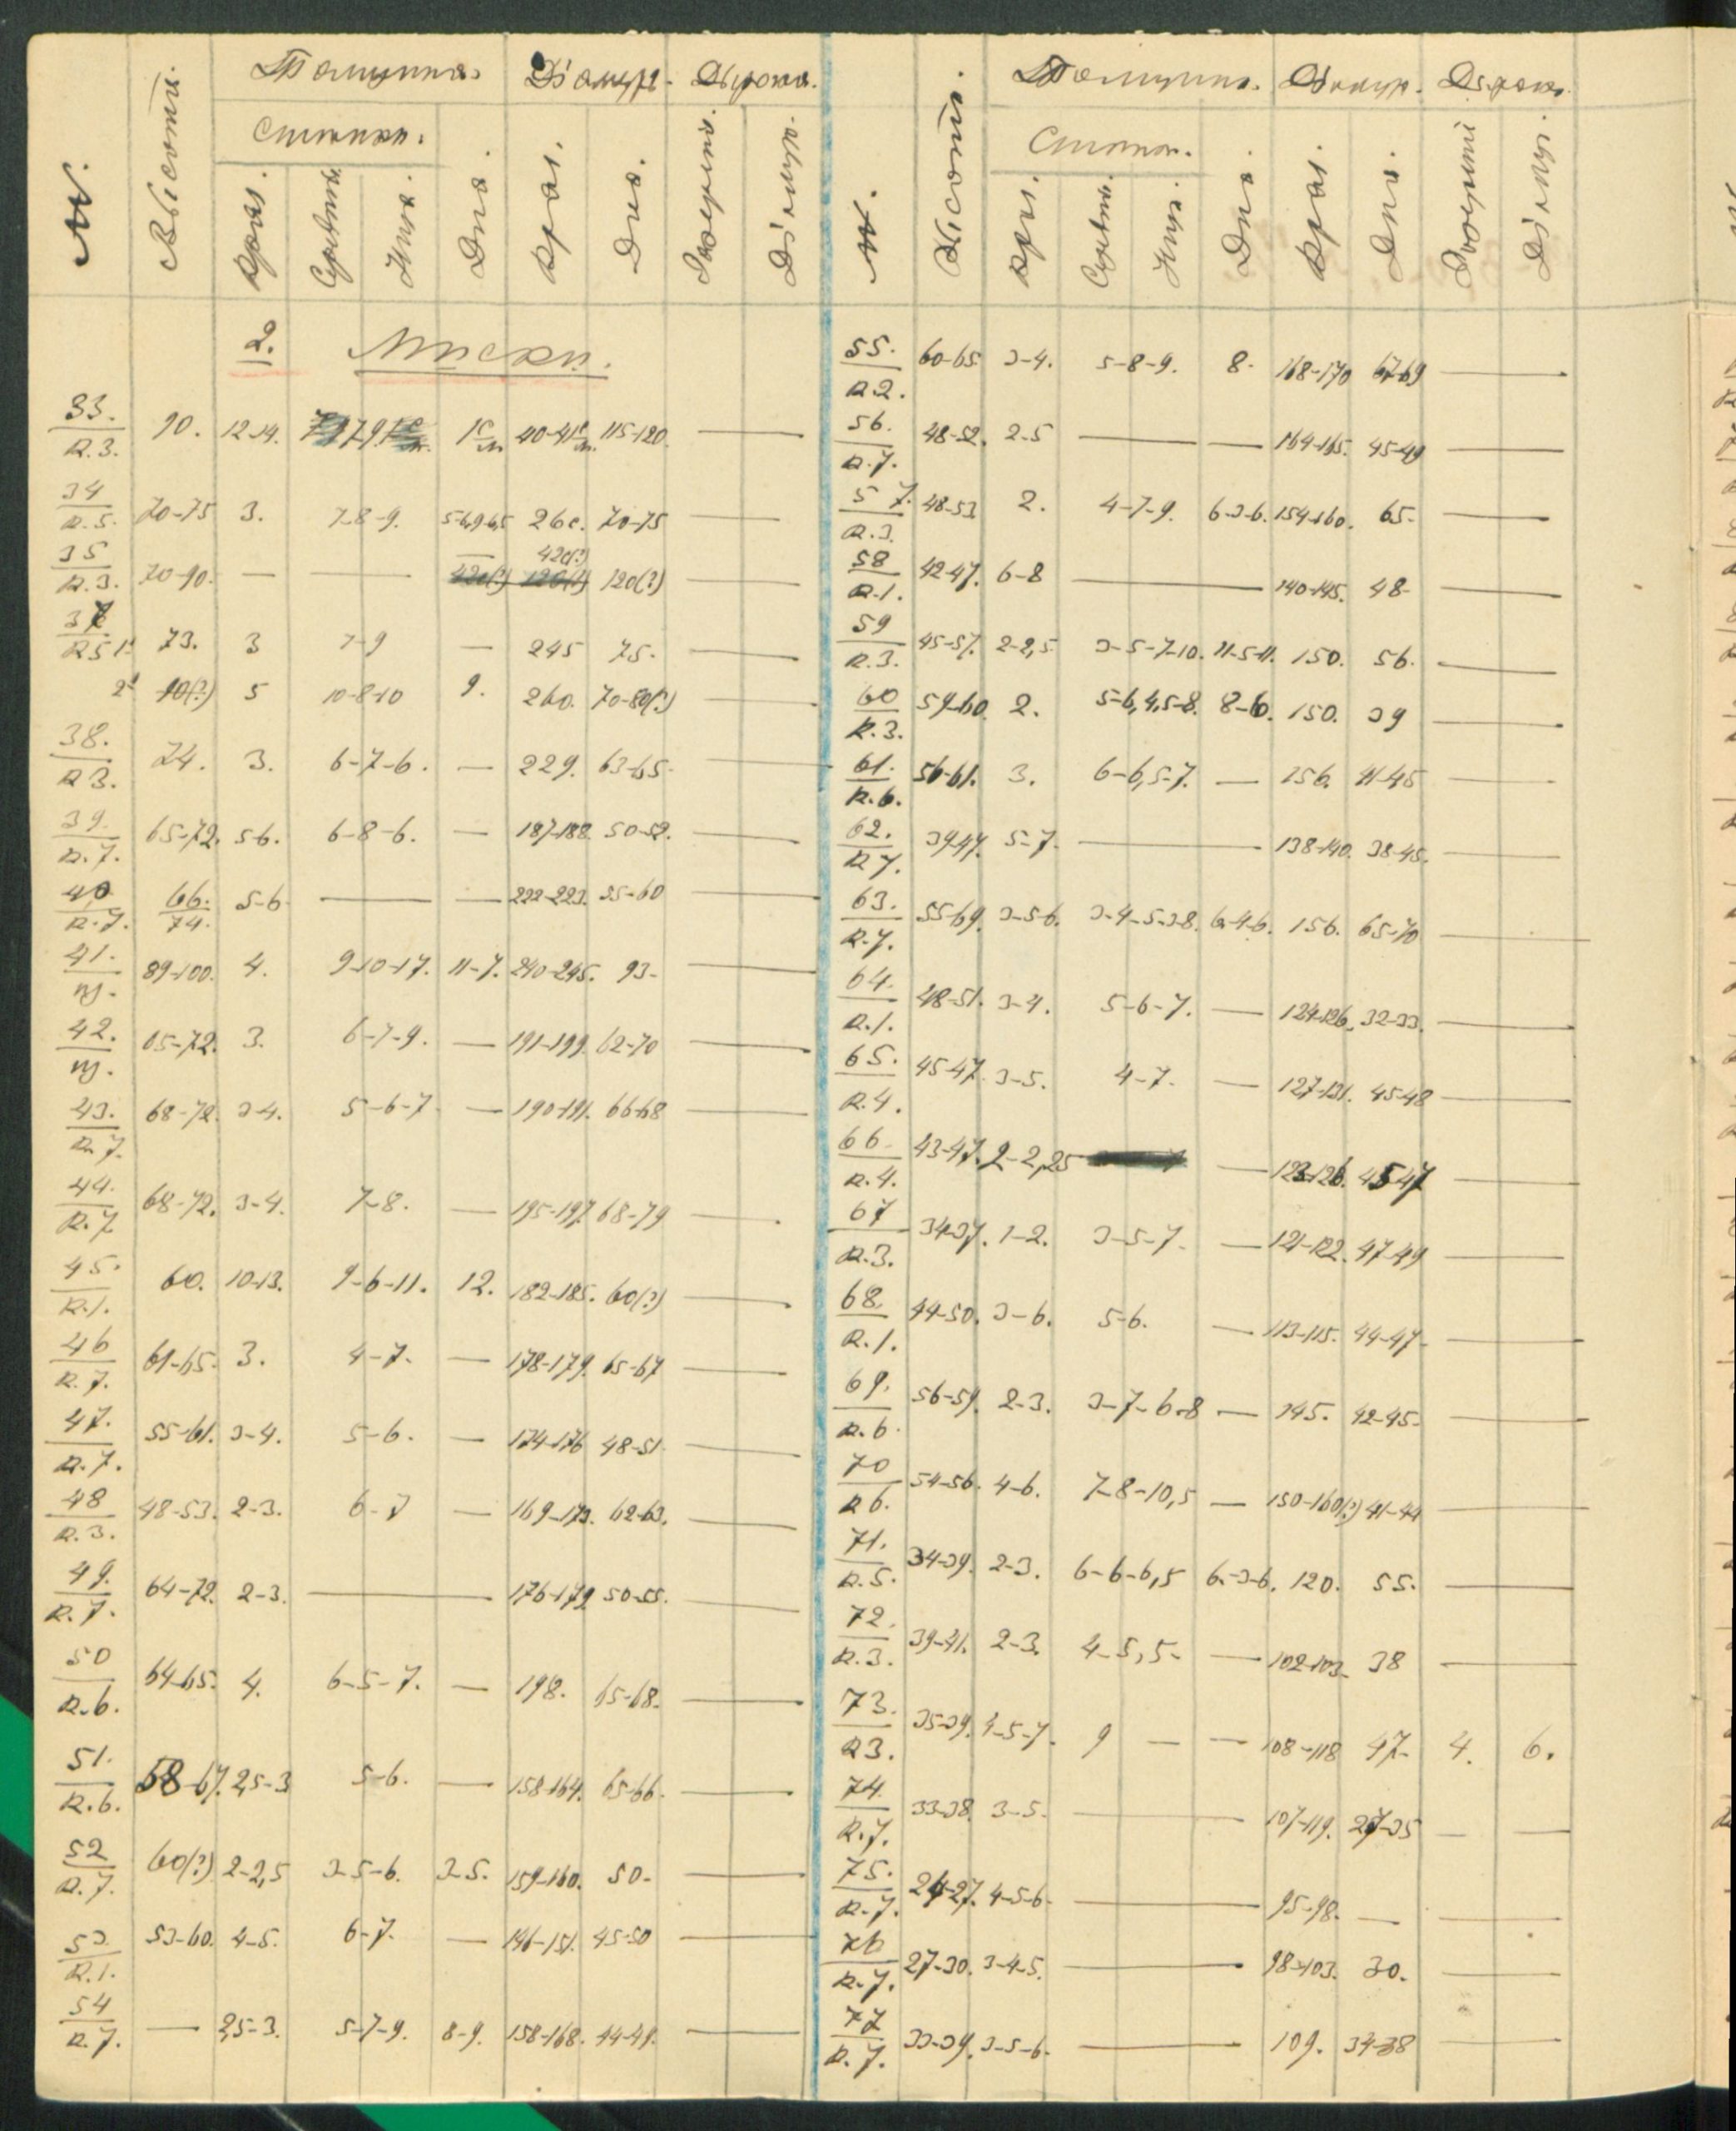 №. Высота. Толщина. Діаметр. Дырочк.
Стенки. Дна. Края. Дна.
Края. Средин. Низа.
2. Миски.
33. R.3. 90. 12-14. 115-120. —
34 R.5. 70-75 3. 7-8-9. 26с. 70-75 —
35 R.3. 70-90. — — — 420(?) 120(?) —
R5 1) 73. 3 7-9 — 245 75. —
2) 90(?) 5 10-8-10 9. 260. 70-80(?)
38. R3. 74. 3. 6-7-6. — 229. 63-65. —
39. R.7. 65-72. 5-6. 6-8-6. — 187-188. 50-52. —
40 R.7. 66. 74. 5-6 — — 222-223. 55-60 —
41. 89-100. 4. 9-10-17. 11-7. 240-245. 93. —
42. 65-72. 3. 6-7-9. — 191-199. 62-70 —
43. R.7. 68-72. 3-4. 5-6-7 — 190-191. 66-68 —
44. R.7 68-72. 3-4. 7-8. — 195-197. 68-79 —
45. R.1. 60. 10-13. 9-6-11. 12. 182-185. 60(?) —
46 R.7. 61-65. 3. 4-7. — 178-179. 65-67 —
47. R.7. 55-61. 3-4. 5-6. — 174-176 48-51 —
48 R.3. 48-53. 2-3. 6-7 — 169-173. 62-63. —
49. R.7. 64-72. 2-3. — 176-179. 50-55. —
50 R.6. 64-65. 4. 6-5-7. — 198. 65-68. —
51. R.6. 58-67. 2,5-3 5-6. — 158-164. 65-66. —
52 R.7. 60(?) 2-2,5 3-5-6. 3-5. 159-160. 50. —
53. R.1. 53-60. 4-5. 6-7. — 146-151. 45-50 —
54 R.7. — 2,5-3. 5-7-9. 8-9. 158-168. 44-49. —
№. Высота. Толщина. Діаметр. Дырочк.
Стенки. Дна. Края. Дна.
Края. Средин. Низа.
55. R2. 60-65. 3-4. 5-8-9. 8. 168-170 67-69 —
56. R.7. 48-52. 2-5 — — 164-165. 45-49 —
57. R.3. 48-53 2. 4-7-9. 6-3-6. 154-160. 65. —
58 R.1. 42-47. 6-8 — 140-145. 48. —
59 R.3. 45-57. 2-2,5 3-5-7-10. 11-5-11. 150. 56. —
60 R.3. 59-60. 2. 5-6,4,5-8. 8-6. 150. 39 —
61. R.6. 56-61. 3. 6-6,5-7. — 156. 41-45 —
62. R7. 39-47. 5-7. — 138-140. 38-45. —
63. R.7. 55-69. 3-5-6. 3-4-5-3-8. 6-4-6. 156. 65-70 —
64. R.1. 48-51. 3-4. 5-6-7. — 124-126. 32-33. —
65. R.4. 45-47. 3-5. 4-7. — 127-131. 45-48 —
66. R.4. 43-47. 2-2,25 — 123-126. 45-47 —
67 R.3. 34-37. 1-2. 3-5-7. — 121-122. 47-49 —
68. R.1. 44-50. 3-6. 5-6. — 113-115. 44-47. —
69. R.6. 56-59. 2-3. 3-7-6-8 — 145. 42-45. —
70 R6. 54-56. 4-6. 7-8-10,5 — 150-160(?) 41-44 —
71. R.5. 34-39. 2-3. 6-6-6,5 6-3-6. 120. 55. —
72. R.3. 39-41. 2-3. 4-5,5. — 102-103. 38 —
73. R3. 35-39. 4-5-7. 9 — — 108-118 47. 4. 6.
74. R.7. 33-38. 3-5. — 107-119. 27-35 — —
75. R.7. 24-27. 4-5-6. — 95-98. — —
76 R.7. 27-30. 3-4-5. — 98-103. 30. —
77 R.7. 33-39. 3-5-6. — 109. 34-38 —